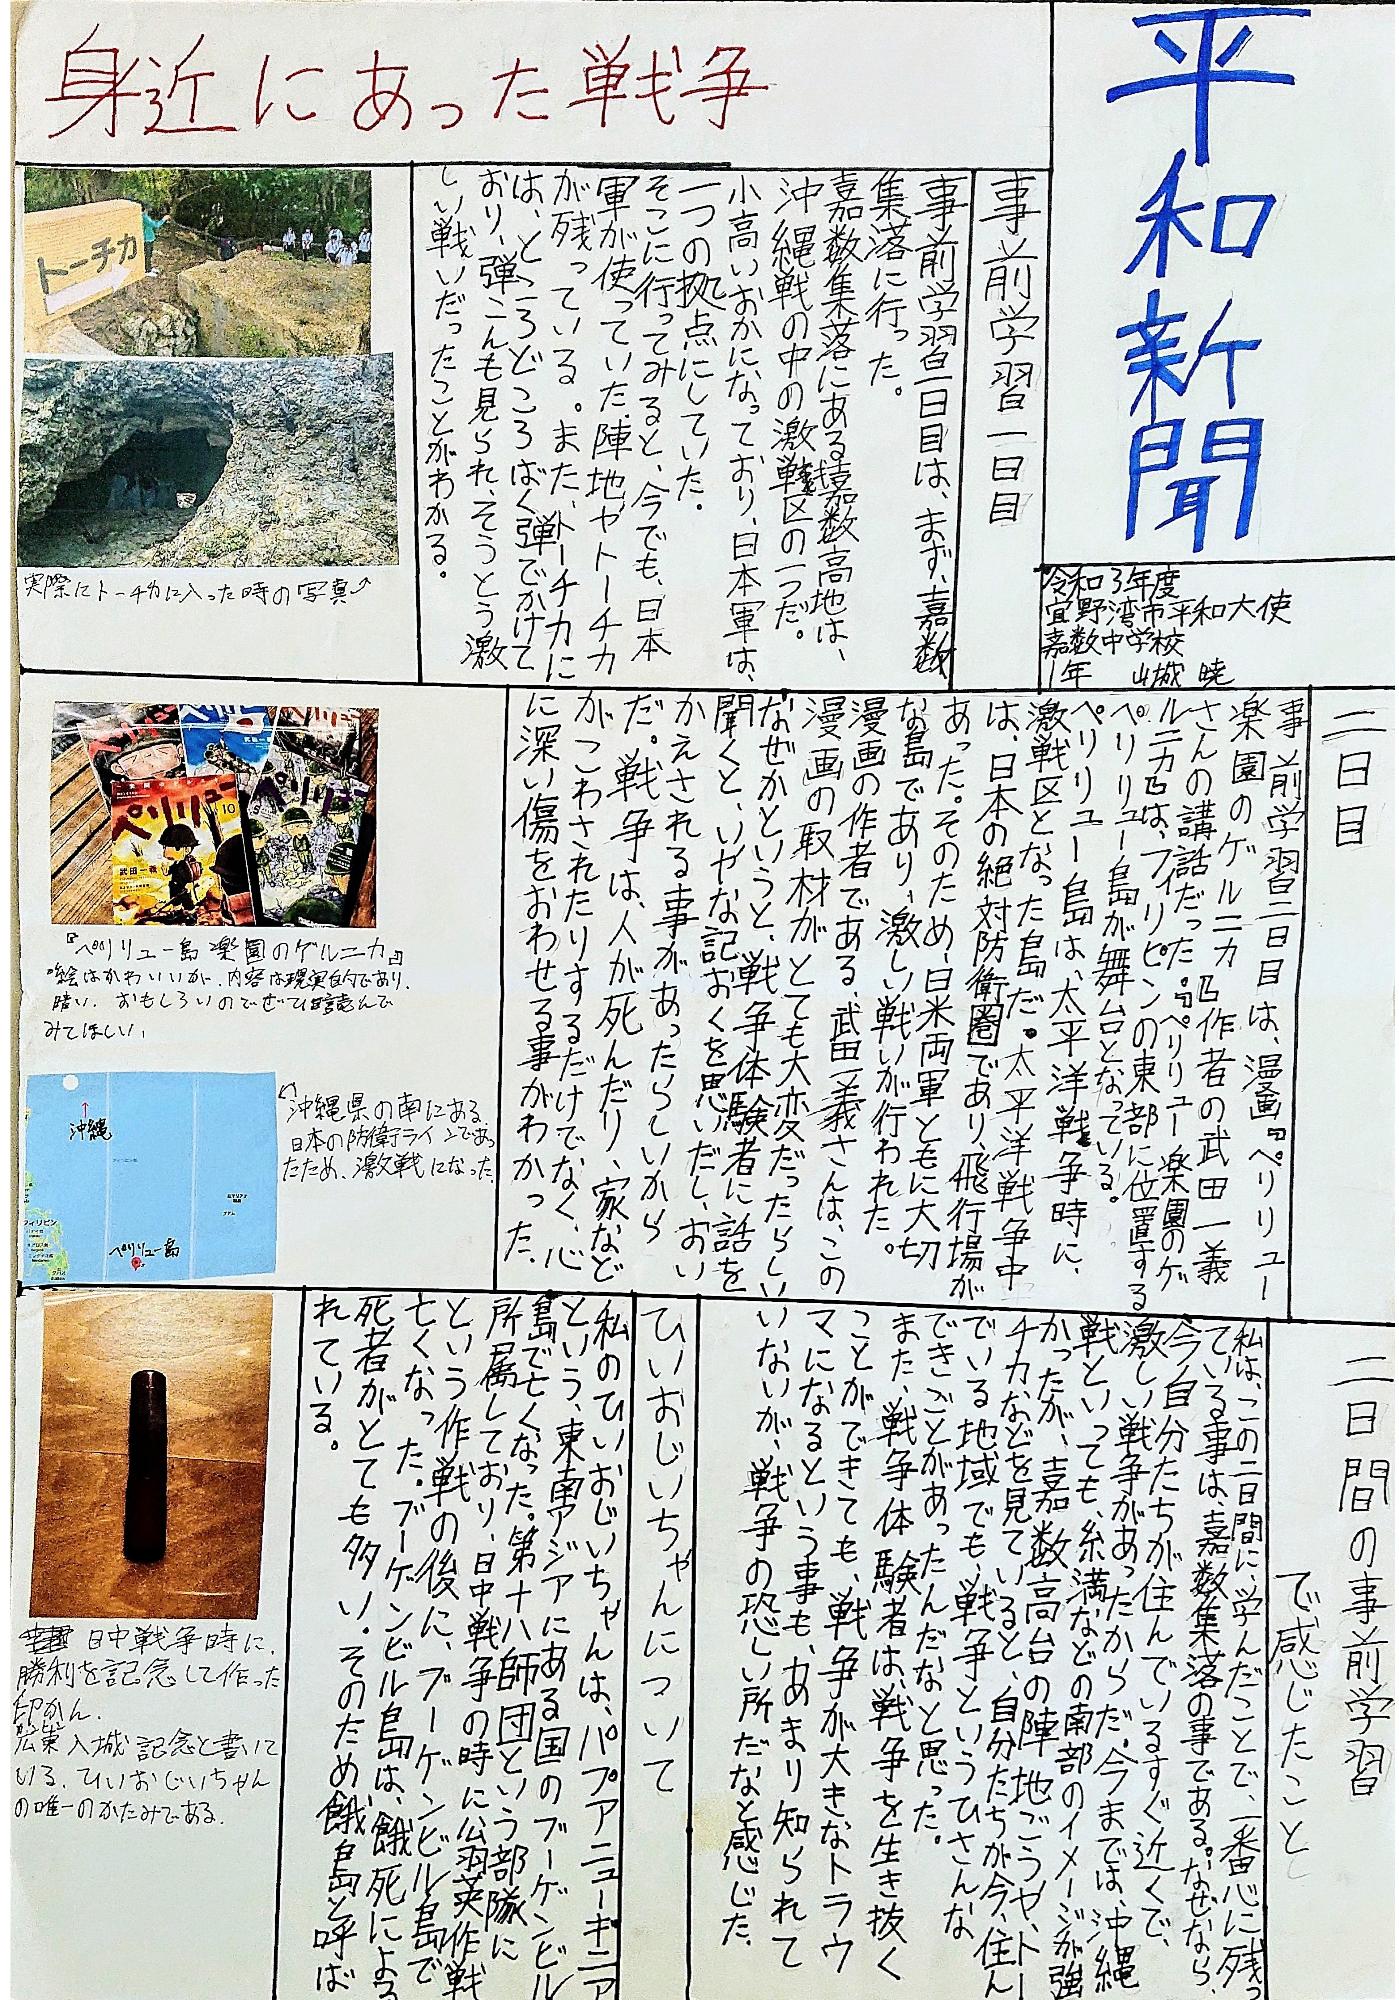 平和新聞
令和3年度
宜野湾市平和大使
嘉数中学校
1年 山城 暁
身近にあった戦争
事前学習一日目
事前学習一日目は、まず、嘉数
集落に行った。
嘉数集落にある嘉数高地は、
沖縄戦の中の激戦区の一つだ。
小高いおかになっており、日本軍は、
一つの拠点にしていた。
そこに行ってみると、今でも、日本
軍が使っていた、陣地やトーチカ
が残っている。また、トーチカに
は、ところどころばく弾でかけて
おり、弾こんも見られ、そうとう激
しい戦いだったことがわかる。
トーチカ
実際にトーチカに入った時の写真
二日目
事前学習二日目は、漫画『ペリリュー
楽園のゲルニカ』作者の武田一義
さんの講話だった。『ペリリュー楽園のゲ
ルニカ』は、フィリピンの東部に位置する
ペリリュー島が舞台となっている。
ペリリュー島は、太平洋戦争時に、
激戦区となった島だ。太平洋戦争中
は、日本の絶対防衛圏であり、飛行場が
あった。そのため、日米両軍ともに大切
な島であり、激しい戦いが行われた。
漫画の作者である、武田一義さんは、この
漫画の取材がとても大変だったらしい
なぜかというと、戦争体験者に話を
聞くと、いやな記おくを思いだし、おい
かえされる事があったらしいから
だ。戦争は、人が死んだり、家など
がこわされたりするだけでなく、心
に深い傷をおわせる事がわかった。
ペリリュー
武田一義
10
『ペリリュー島 楽園のゲルニカ』
絵はかわいいが、内容は現実的であり、
暗い。おもしろいのでぜひ読んで
みてほしい。
沖縄県の南にある。
日本の防衛ラインであっ
たため、激戦になった。
沖縄
フィリピン
ペリリュー島
二日間の事前学習
で感じたこと
私は、この二日間に、学んだことで、一番心に残っ
ている事は、嘉数集落の事である。なぜなら、
今、自分たちが住んでいるすぐ近くで、
激しい戦争があったからだ。今までは、沖縄
戦といっても、糸満などの南部のイメージが強
かったが、嘉数高台の陣地ごうや、トー
チカなどを見ていると、自分たちが今、住ん
でいる地域でも、戦争というひさんな
できごとがあったんだなと思った。
また、戦争体験者は、戦争を生き抜く
ことができても、戦争が大きなトラウ
マになるという事も、あまり知られて
いないが、戦争の恐しい所だなと感じた。
ひいおじいちゃんについて
私のひいおじいちゃんは、パプアニューギニア
という、東南アジアにある国のブーゲンビル
島で亡くなった。第十八師団という部隊に
所属しており、日中戦争の時に公羽英作戦
という作戦の後に、ブーゲンビル島で
亡くなった。ブーゲンビル島は、餓死による
死者がとても多い。そのため餓島と呼ば
れている。
日中戦争時に、
勝利を記念して作った
印かん。
広東入城記念と書いて
いる。ひいおじいちゃん
の唯一のかたみである。